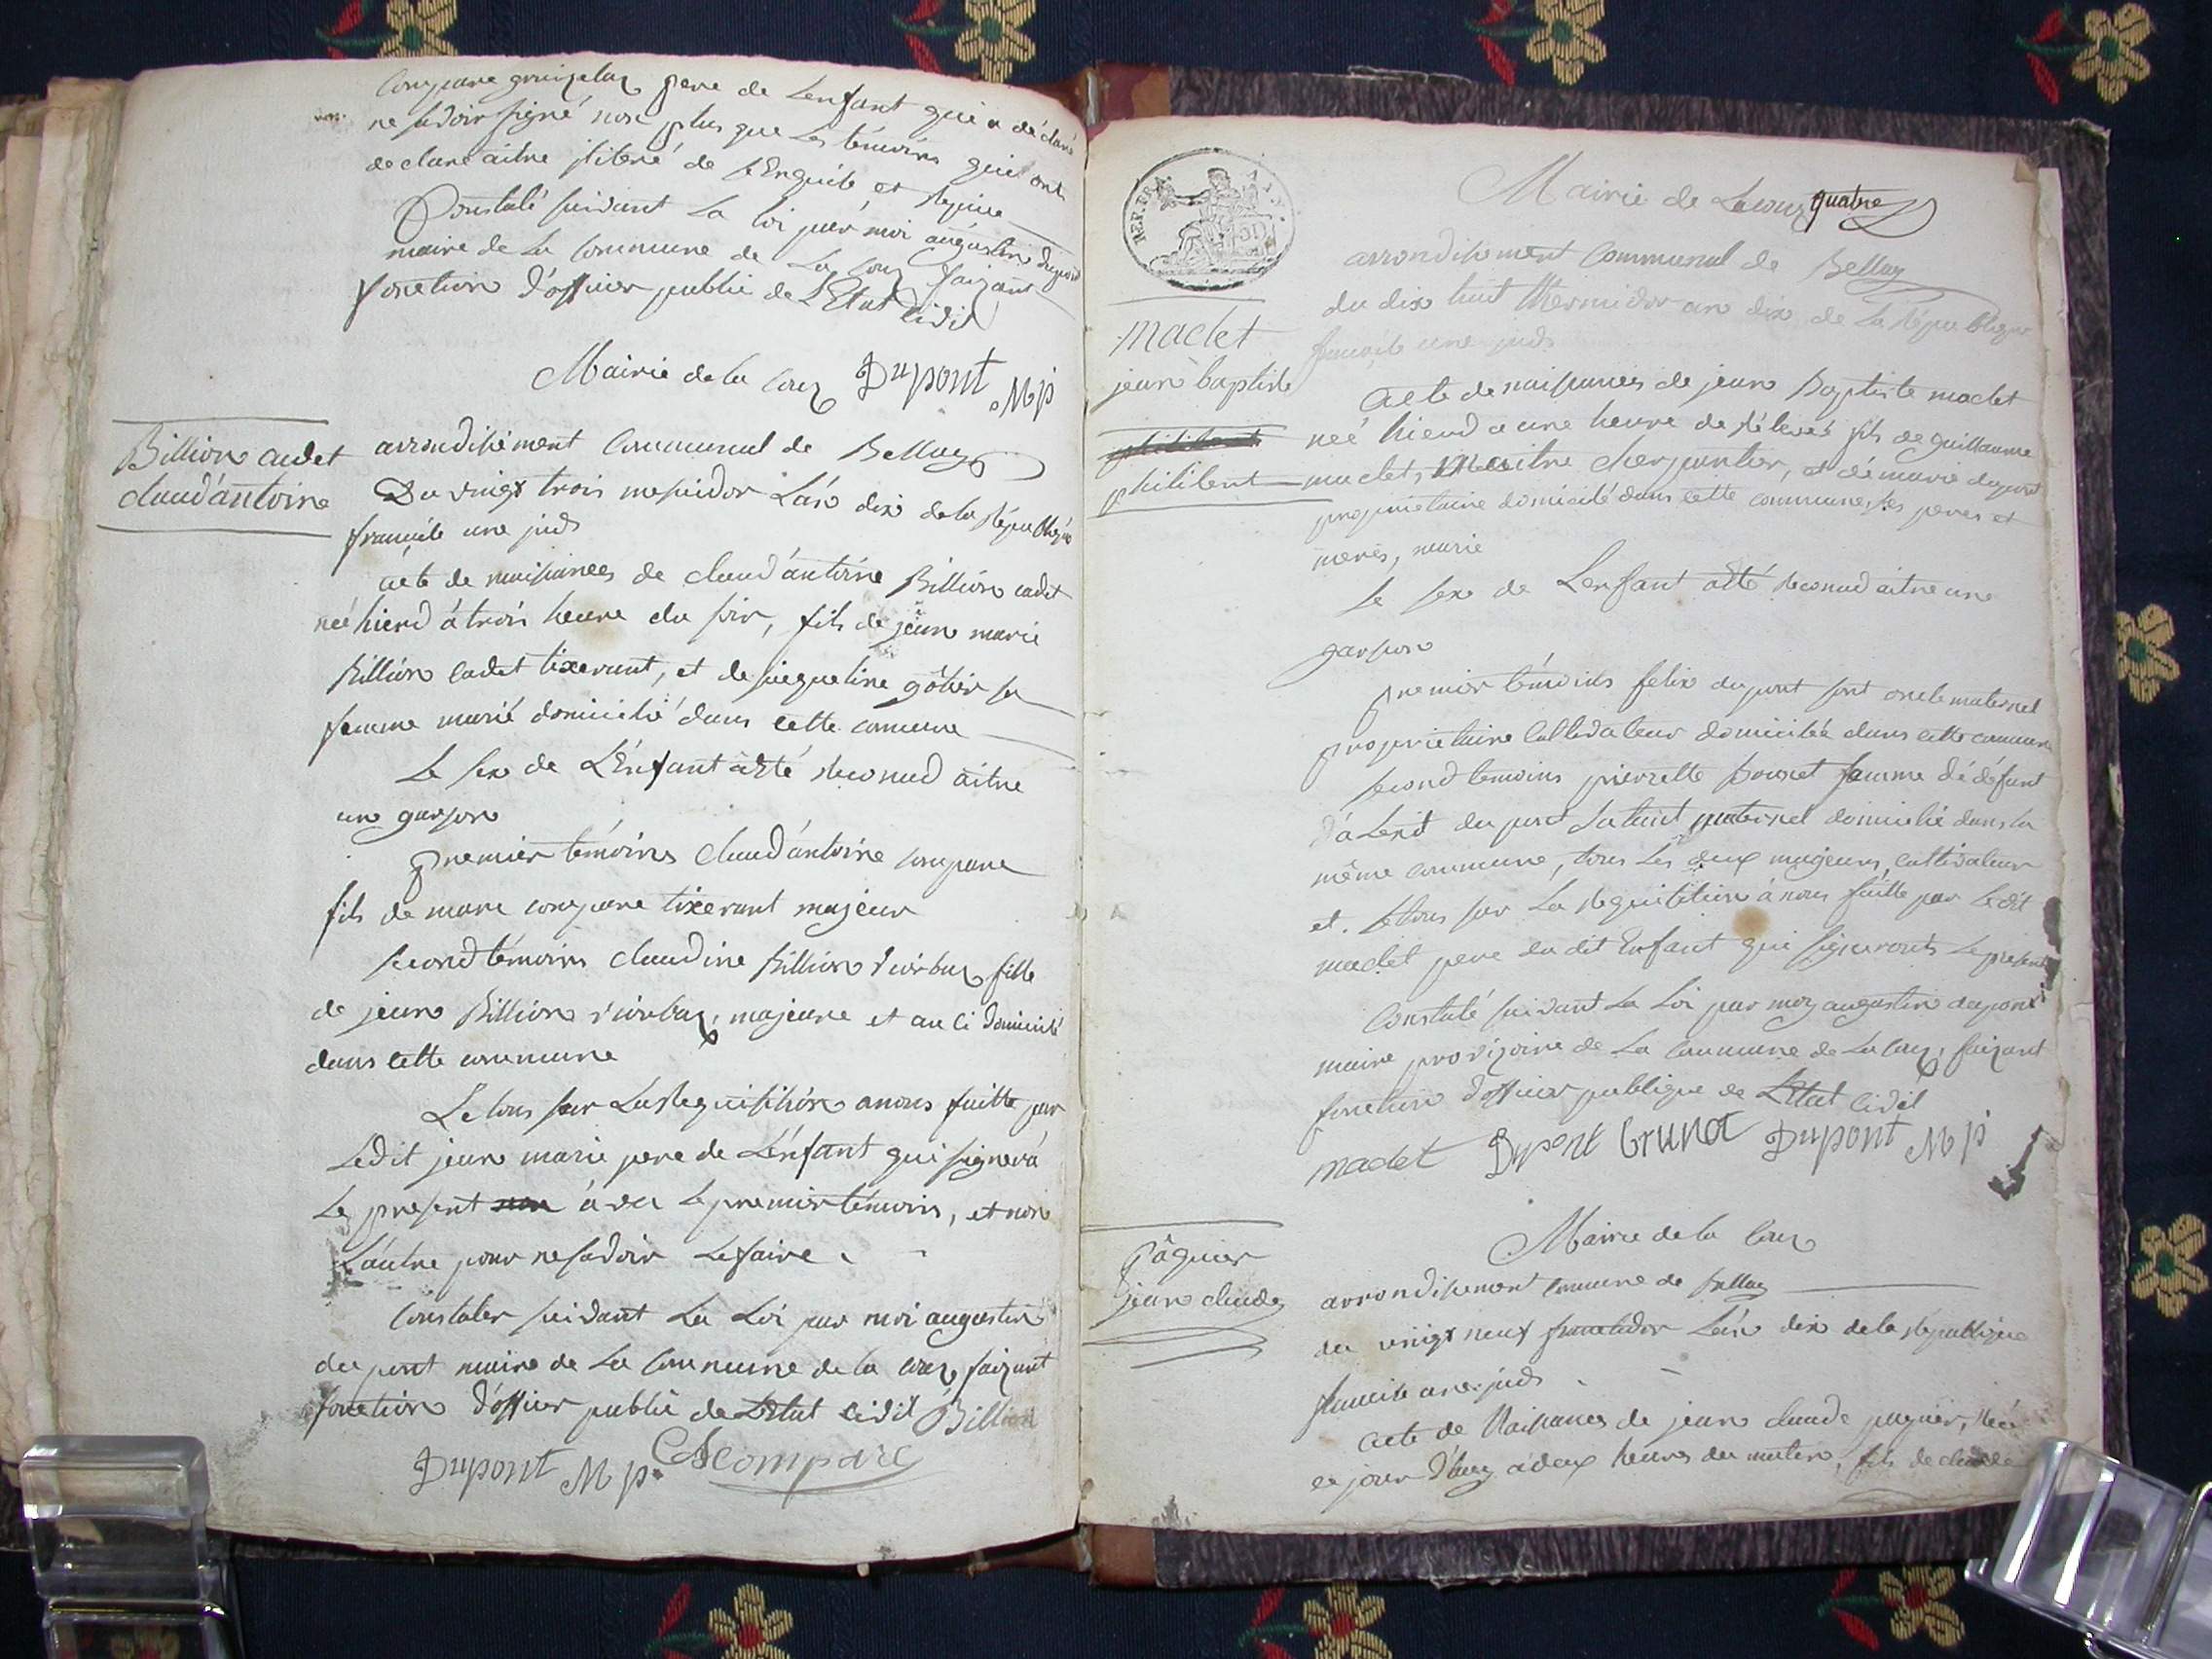 Compare père de Lenfant qui a déclaré
ne sadoir signé non plus que Les témoins qui ont
declaré aitre de Lenquite et
Constaté suivant La loi par moi augustin dupont
maire de La commune de La Coux faizant
fonction d'officier public de L'Etat Cidil
Mairie de la Coux Dupont Mp
Billion cadet
claud'antoine
arrondissement Communal de Belley
Du vingt trois messidor L'an dix de la République
francaise une
acte de naissances de claud'antoine Billion cadet
née hierd à trois heure du soir, fils de jean marie
Billion cadet tixerant, et de jacqueline sa
femme marié domicilié dans cette comune
Le sex de L'Enfant a été reconud aitre
un garson
premier témoins claud'antoine compare
fils de marc compare tixerant majeur
second témoins claudine Billion fille
de jean Billion majeure et au ci domicilié
dans cette commune
Le tous sur La Requisition a nous faitte par
Ledit jean marie pere de L'énfant qui signera
Le present avec Le premier témoins, et non
L'autre pour ne sadoir Le faire.
Constater suidant La Loi par moi augustin
du pont maire de La Commune de la Coux faizant
fonction d'officier public de L'Etat Cidil Billion
Dupont Mp. compare
REP. FRA.
Mairie de Lacoux quatre
arrondissement Communal de Belley
du dix huit thermidor an dix de La République
francaise une
maclet
jean baptiste
philibert
acte de naissances de jean Baptiste maclet
neé hierd a une heure de fils de guillaume
maclet, Maitre cherpantier, et dé marie dupont
proprietaire domicilé dans cette commune, ses peres et
meres, marié
Le sex de Lenfant a été reconud aitre une
garson
premier témoids felix du pont sont oncle maternel
proprietaire Cultidateur domicilée dans cette commune
second temoins pierrette femme dé défunt
du pont sa tant domicilié dans la
même commune, tous Les deux majeurs, cultivateur
et. Letous sur La Requisition à nous faitte par Ledit
maclet pere du dit Enfant qui signeronts Le present
Constaté suidant La Loi par moy augustin dupont
maire provizoire de La Commune de La Coux, faizant
fonction d'officier publique de L'Etat Cidil
maclet Dupont brunet Dupont Mp
Mairie de la Coux
Pâquier
jean claude
arrondissement Comune de Belley
du vingt neuf L'an dix de la Republique
francaise une
acte de Naissances de jean claude paquier, née
ce jour d'huy à deux heures du matin, fils de claude